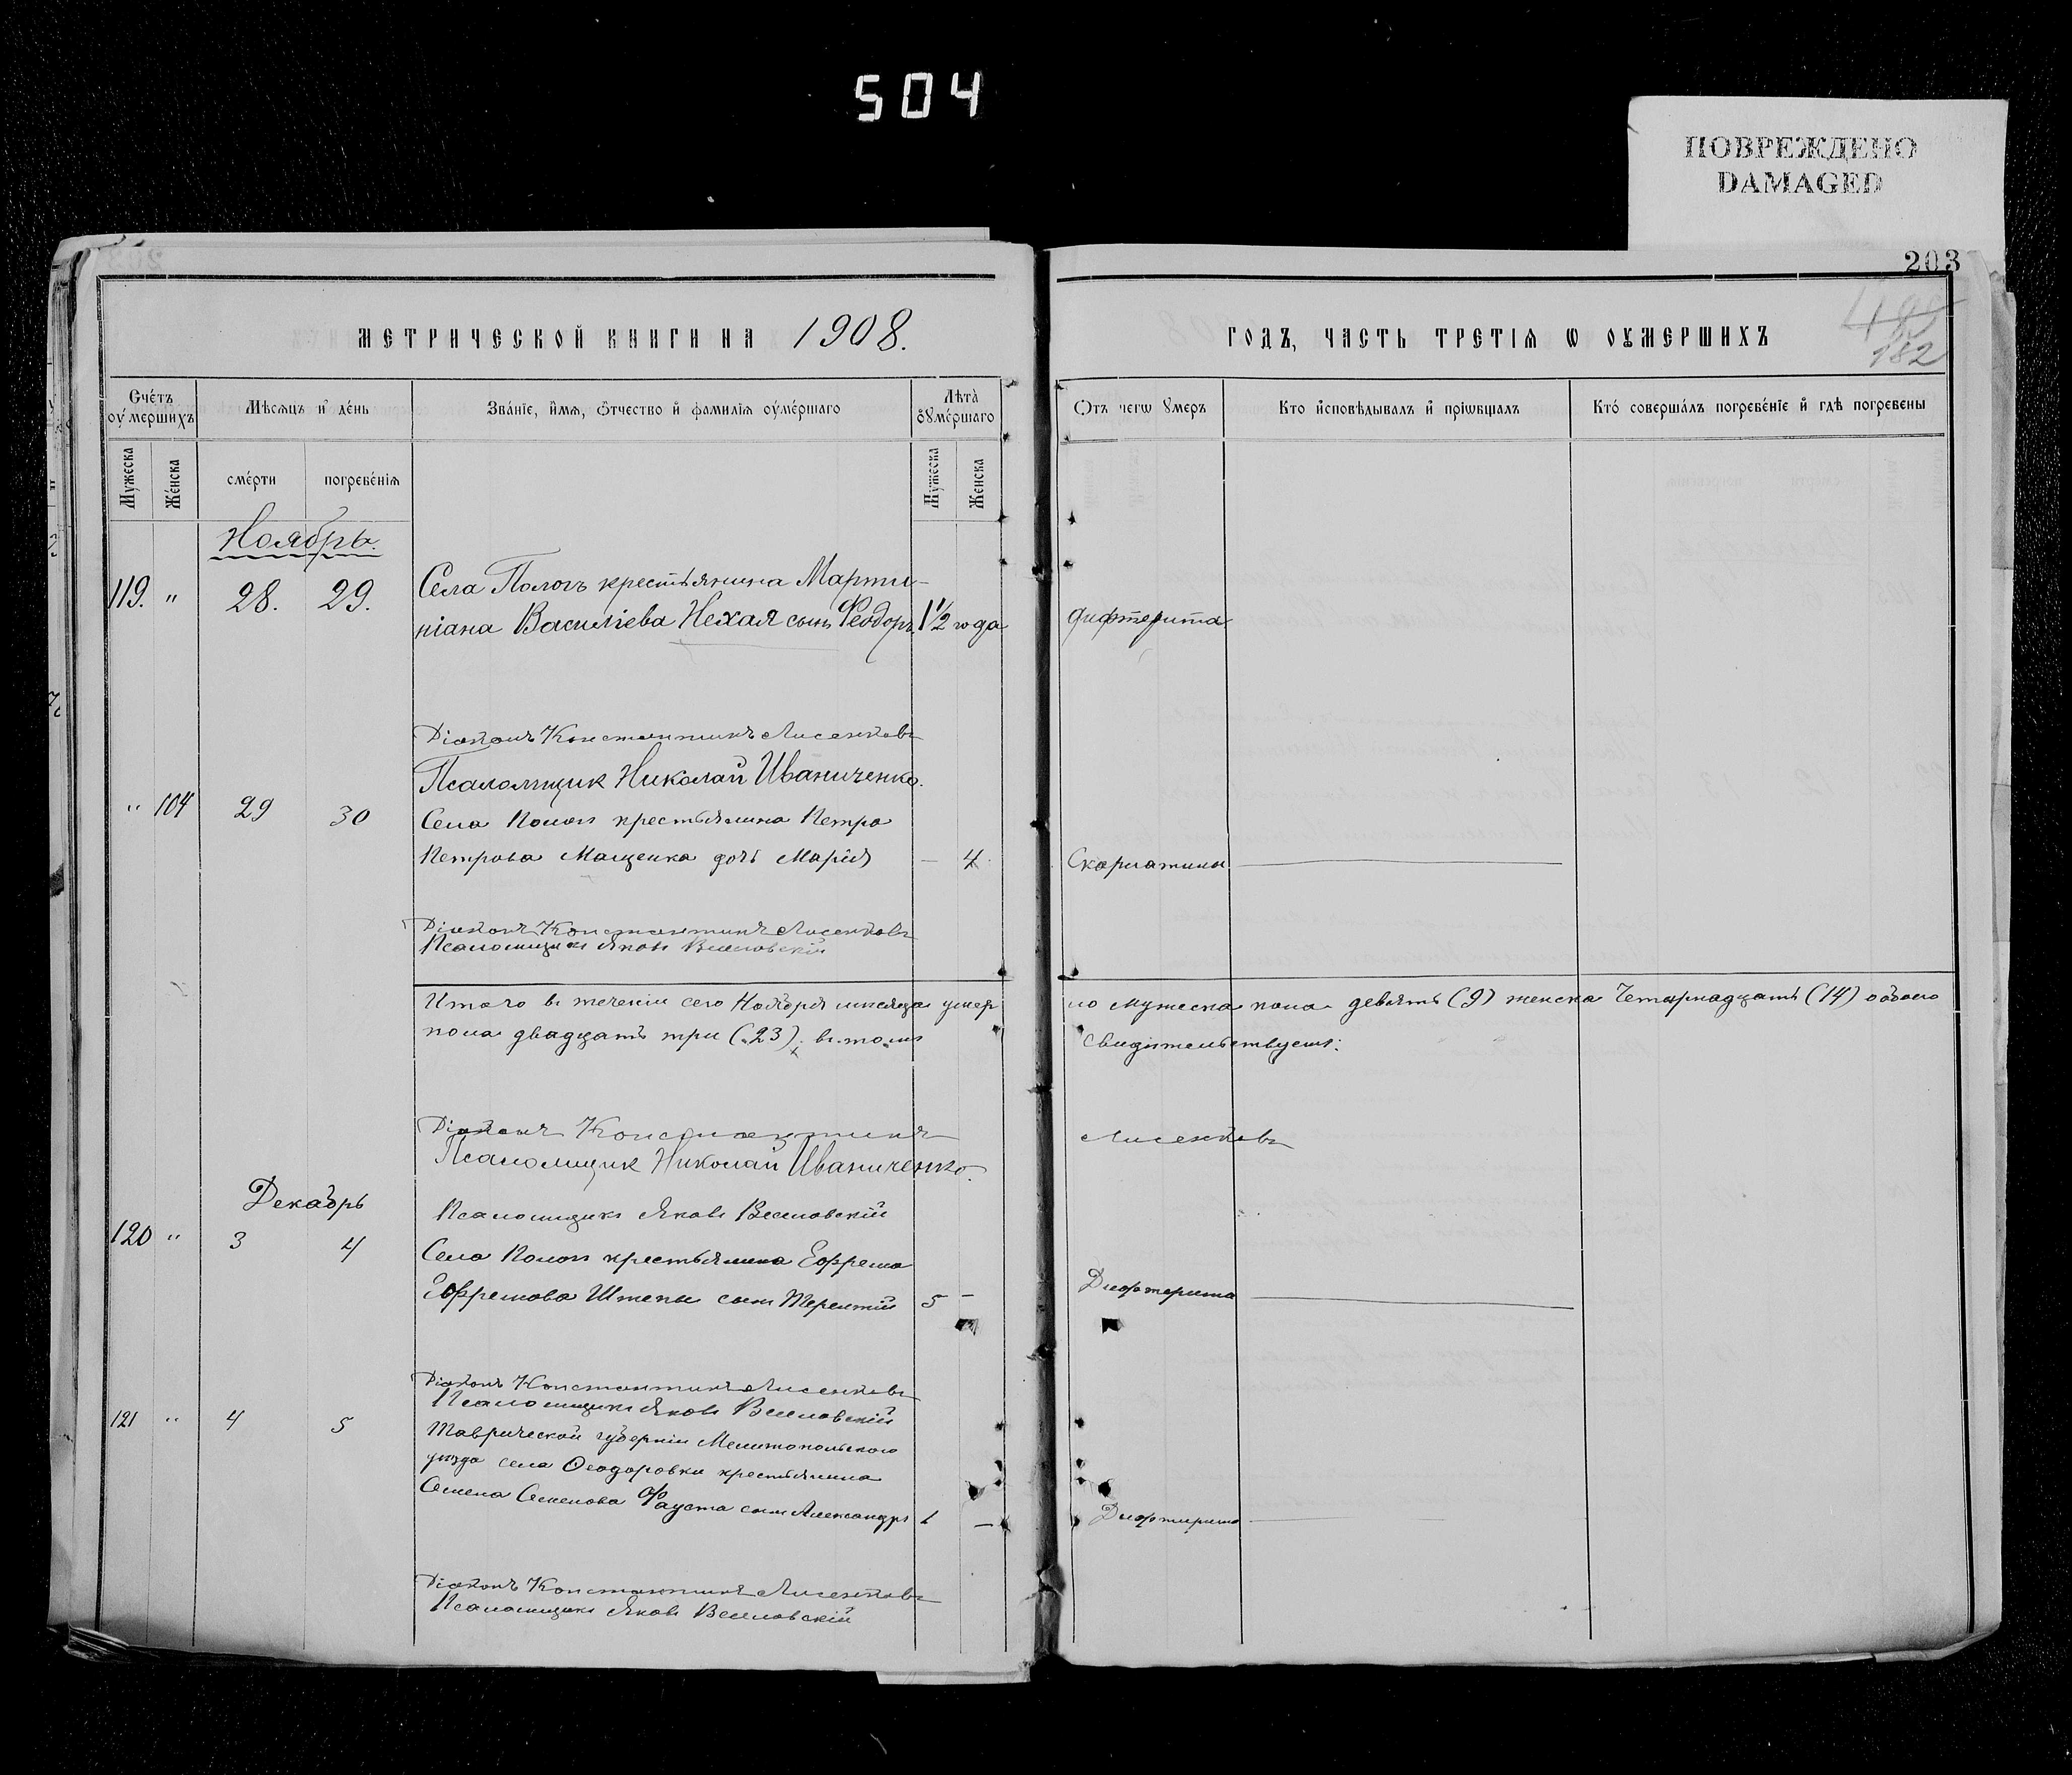 504
ПОВРЕЖДЕНО
DAMAGED
203
485
182
МЕТРИЧЕСКОЙ КНИГИ НА 1908.
ГОДЪ, ЧАСТЬ ТРЕТІѦ Ѡ ОУМЕРШИХЪ
Счéтъ оу҆мершихъ
Мѣсѧцъ и҆ дéнь
Звáніе, и҆́мѧ, ѻ҆́тчество и҆ фамиліѧ оу҆мéршаго
Лѣтà оу҆мéршаго
Ѿтъ чегѡ ᲂумеръ
Кто и҆сповѣдывалъ и҆ прїѡбщалъ
Ктó совершáлъ погребéніе и҆ гдѣ погребены
Мужеска
Жéнска
смéрти
погребéніѧ
Мужеска
Женска
Ноябрь.
119. " 28. 29. Села Пологъ крестьянина Марти-
ніана Василіева Нехая сынъ Феодоръ. 1 1/2 года дифтерита
Діаконъ Константинъ Лисенковъ
Псаломщик Николай Иваниченко.
" 104 29 30 Села Пологъ крестьянина Петра
Петрова Мащенка дочь Марія — 4. Скарлатины
Діаконъ Константинъ Лисенковъ
Псаломщикъ Яковъ Веселовскій
Итого въ теченіи сего Ноября мѣсяца умерло мужеска пола девять (9) женска Четырнадцать (14) обоего
пола двадцать три (23). въ томъ свидѣтельствуемъ:
Діаконъ Константинъ Лисенковъ
Псаломщик Николай Иваниченко.
Псаломщикъ Яковъ Веселовскій
Декабрь
120 " 3 4 Села Пологъ крестьянина Ефрема
Ефремова Штепы сынъ Терентій 5 – Дифтерита
Діаконъ Константинъ Лисенковъ
Псаломщикъ Яковъ Веселовскій
121 " 4 5 Таврической губерніи Мелитопольского
уѣзда села Ѳеодоровки крестьянина
Семена Семенова Фауста сынъ Александръ 1 — Дифтерита
Діаконъ Константинъ Лисенковъ
Псаломщикъ Яковъ Веселовскій